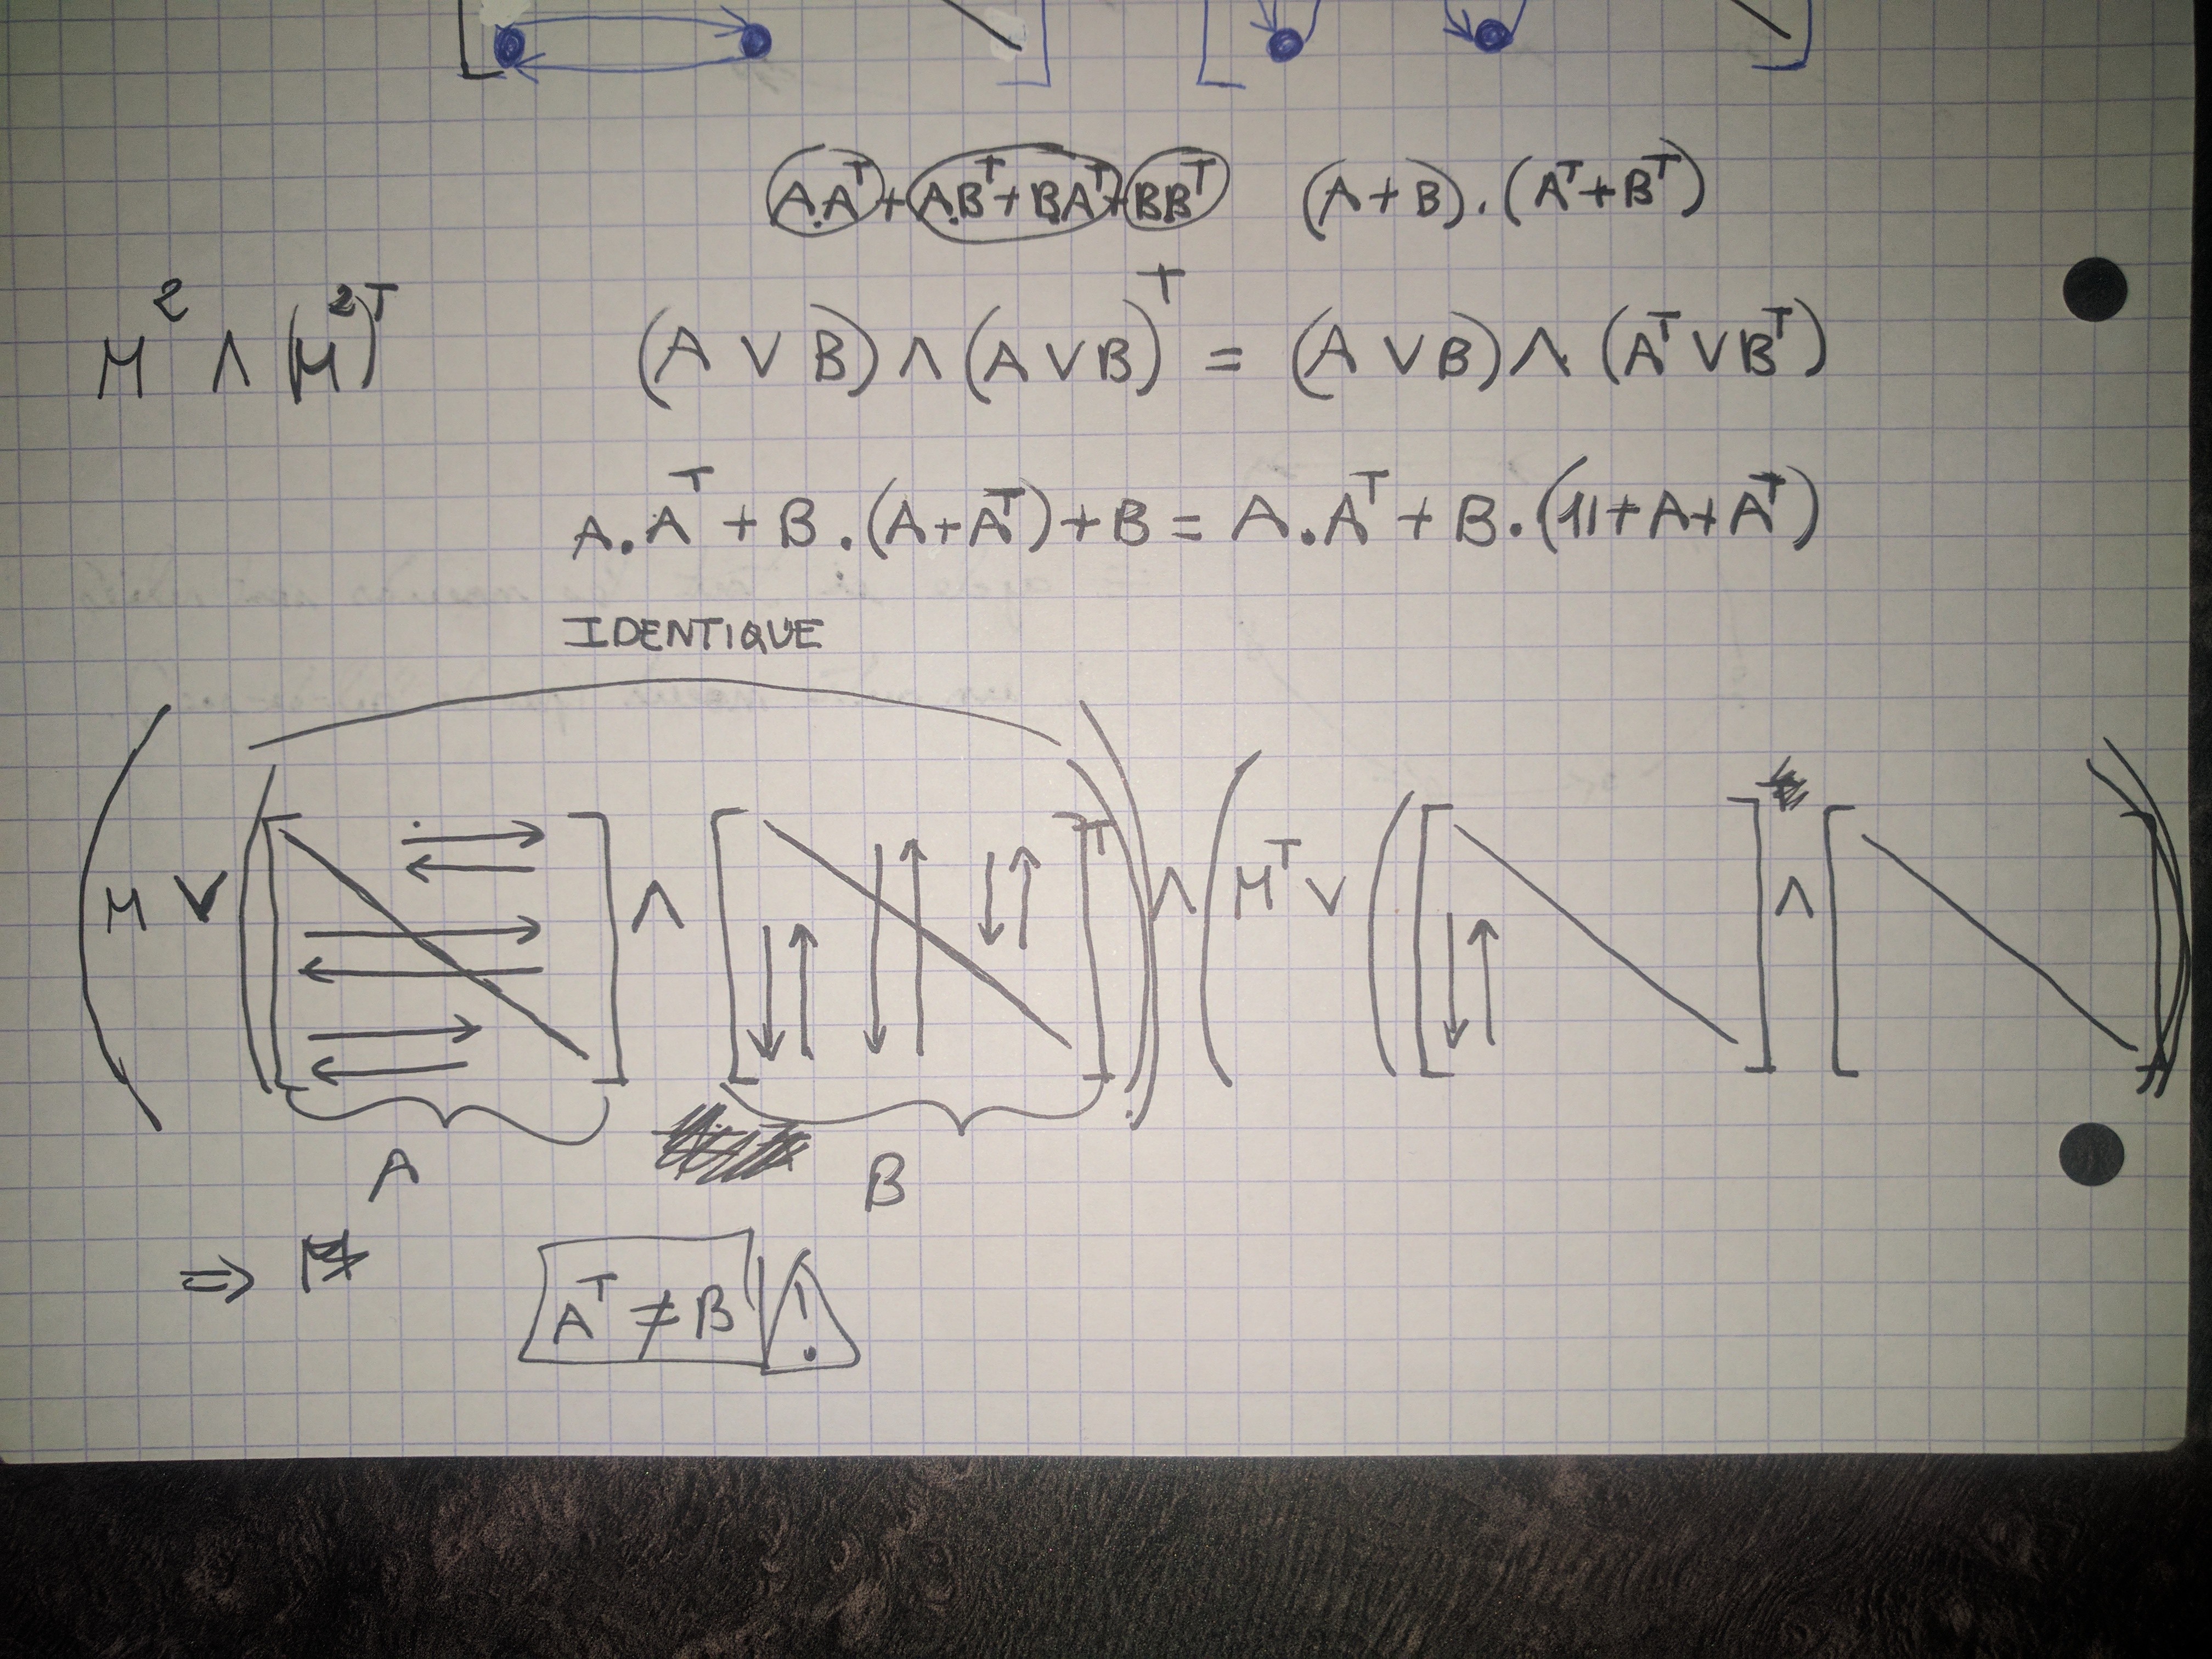 A.Aᵀ + A.Bᵀ + B.Aᵀ + BBᵀ (A + B) . (Aᵀ + Bᵀ)
M² ∧ (M²)ᵀ (A ∨ B) ∧ (A ∨ B)ᵀ = (A ∨ B) ∧ (Aᵀ ∨ Bᵀ)
A.Aᵀ + B.(A + Aᵀ) + B = A.Aᵀ + B.(1l + A + Aᵀ)
IDENTIQUE
( M ∨ ( [ ] ∧ [ ]ᵀ ) ) ∧ ( Mᵀ ∨ ( [ ] ∧ [ ] ) )
A B
⇒
Aᵀ ≠ B !